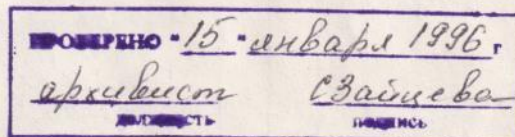 ПРОВЕРЕНО "15" января 1996 г
архивист СЗайцева
ДОЛЖНОСТЬ ПОДПИСЬ